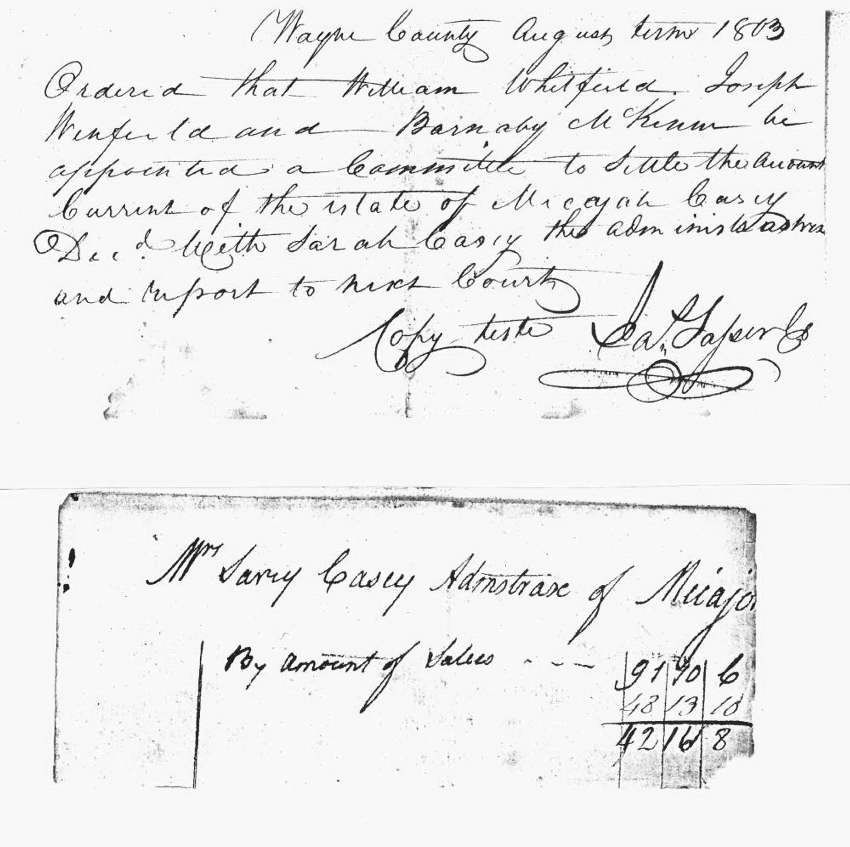 Wayne County August term 1803
Ordered that William Whitfield. Joseph
Winfield and Barnaby McKinne be
appointed a Committee to Settle the Account
Current of the estate of Micajah Casey
Decd. With Sarah Casey the administratrix
and report to next Court
Copy teste
Mrs Sarey Casey Admstrax of Micajo
By amount of Sales - - -
91 10 6
48 13 10
42 16 8